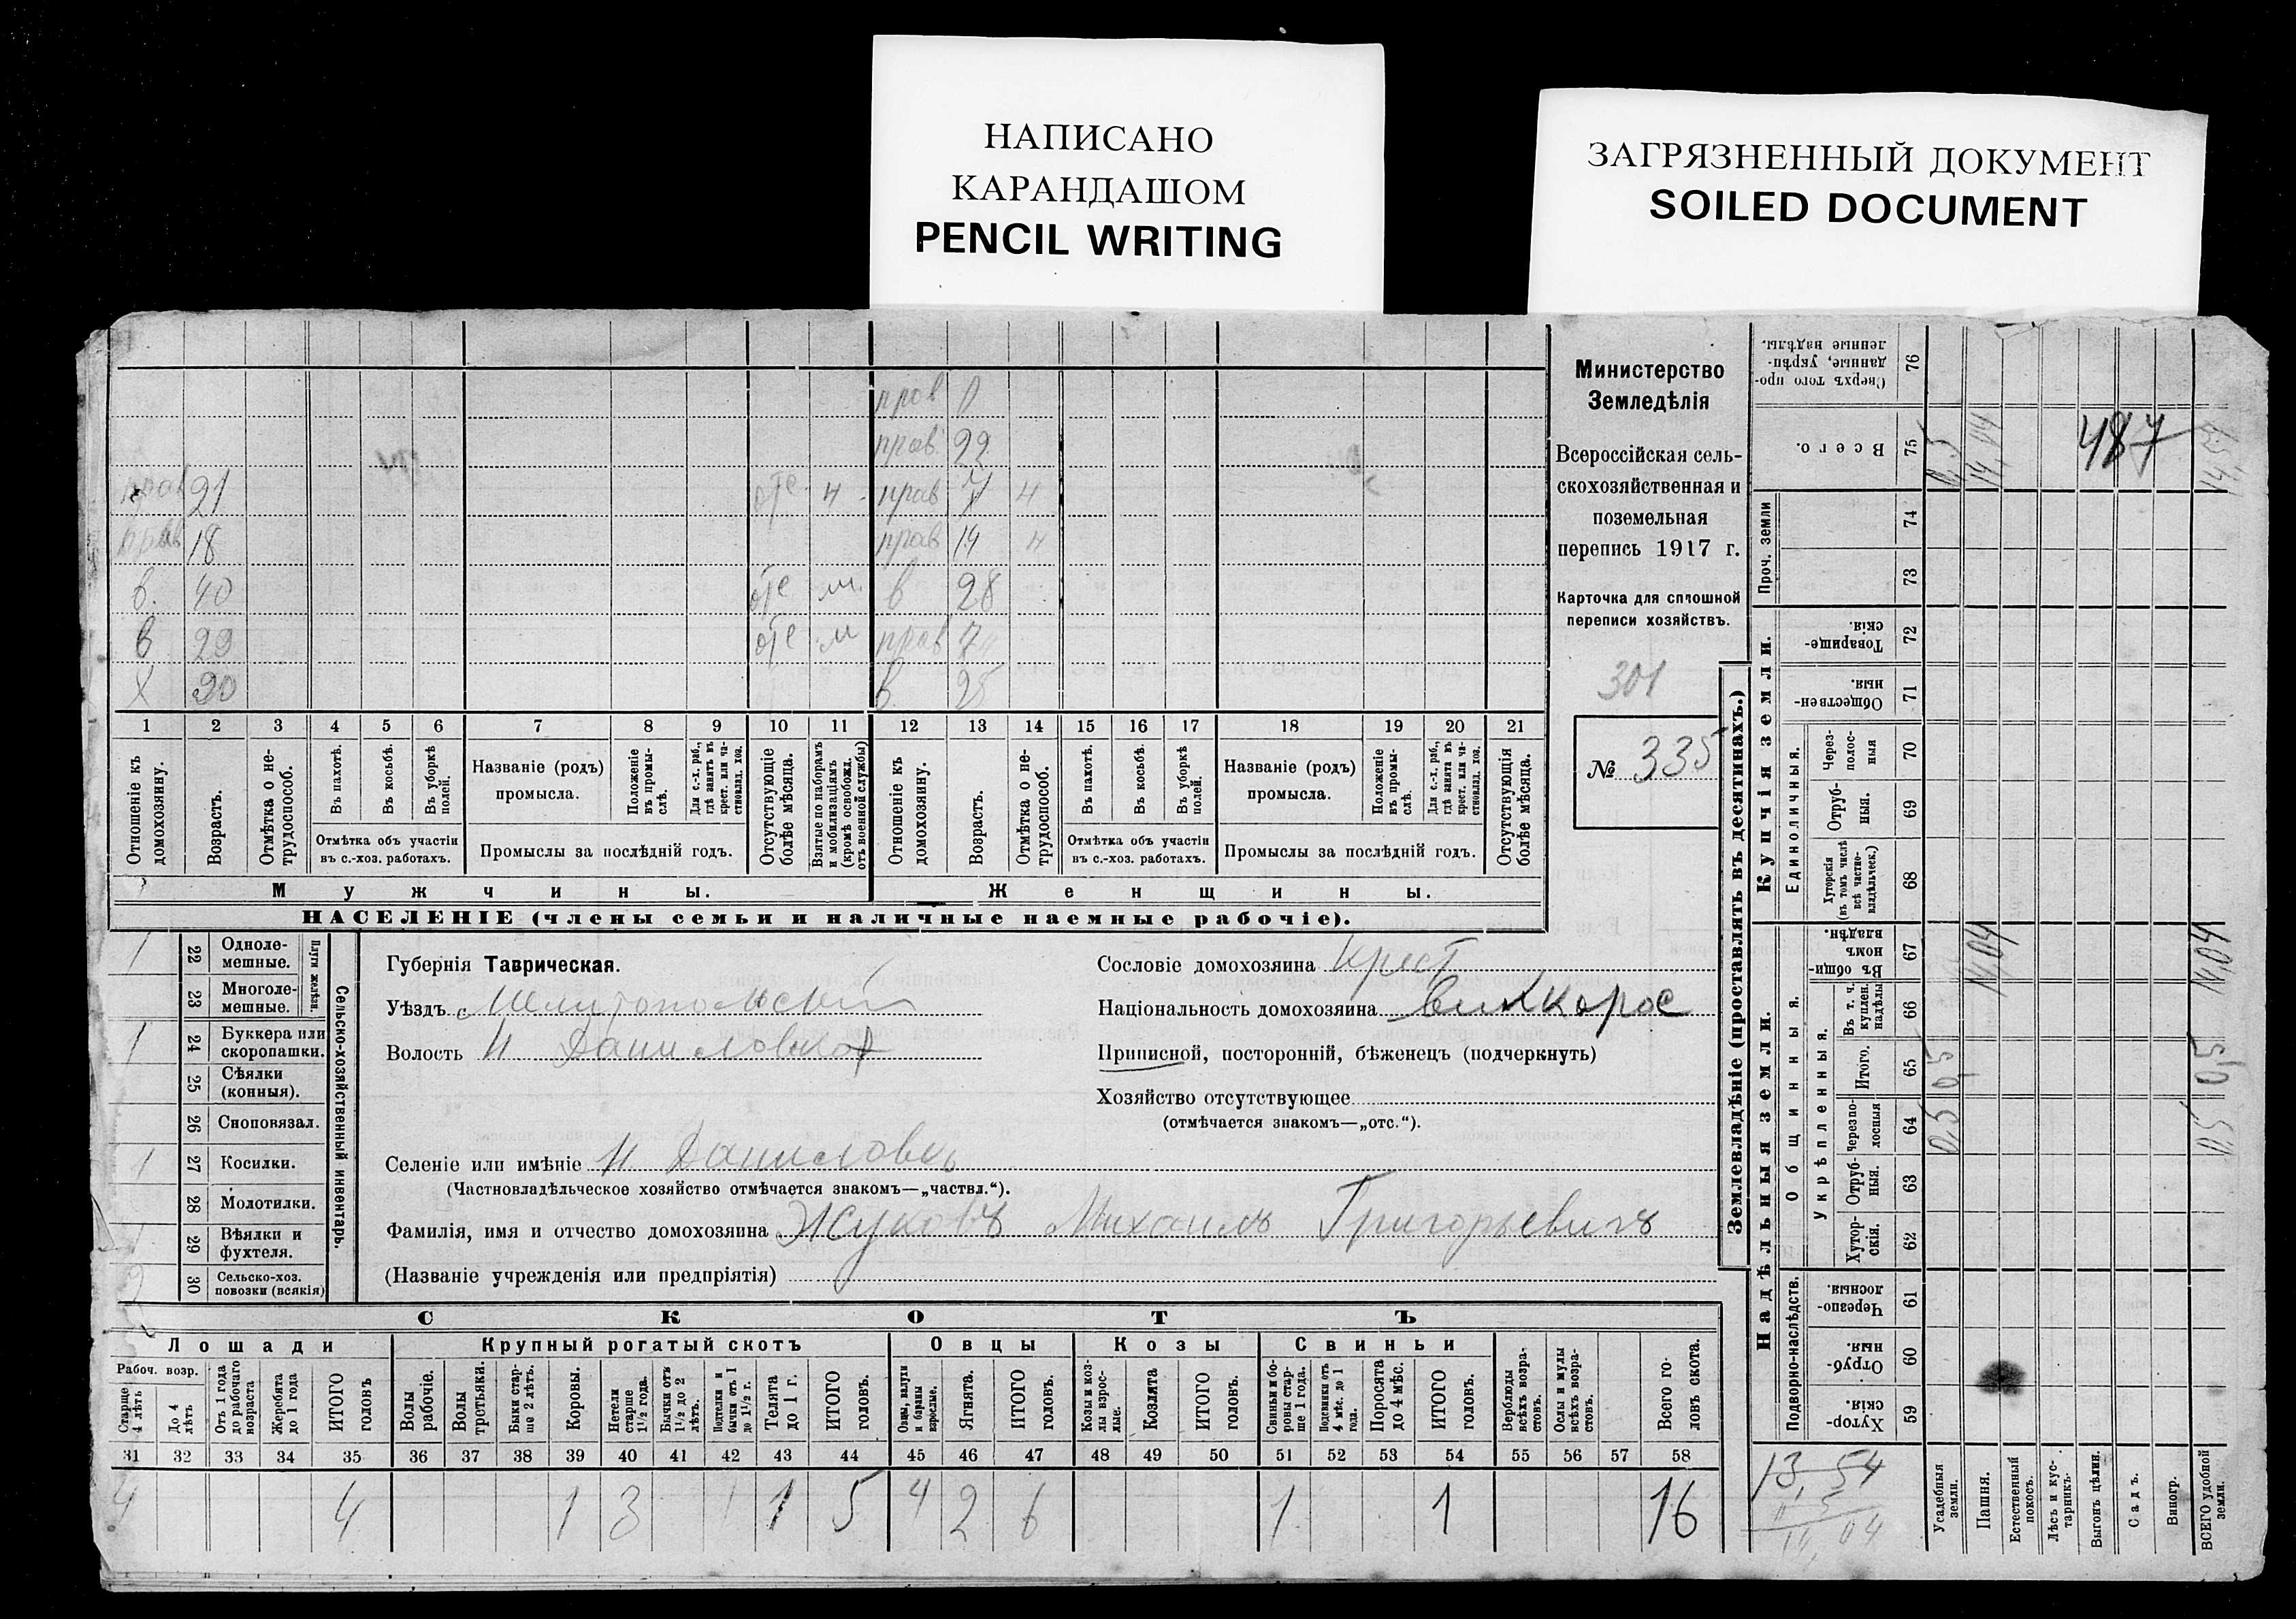 НАПИСАНО
КАРАНДАШОМ
PENCIL WRITING
ЗАГРЯЗНЕННЫЙ ДОКУМЕНТ
SOILED DOCUMENT
прав 0
прав 22
прав 21 отс н прав 7 н
прав 18 прав 14 н
в. 40 отс м. в 28
в 29 отс м прав 7
Х 30 в. 25
1 2 3 4 5 6 7 8 9 10 11 12 13 14 15 16 17 18 19 20 21
Отношеніе къ домохозяину.
Возрастъ.
Отмѣтка о не-трудоспособ.
Въ пахотѣ.
Въ косьбѣ.
Въ уборкѣ полей.
Отмѣтка объ участіи въ с.-хоз. работахъ.
Названіе (родъ) промысла.
Положеніе въ промы-слѣ.
Для с.-х. раб., гдѣ занятъ въ крест. или ча-стновлад. хоз.
Промыслы за послѣдній годъ.
Отсутствующіе болѣе мѣсяца.
Взятые по наборамъ и мобилизаціямъ (кромѣ освобожд. отъ военной службы)
Отношеніе къ домохозяину.
Возрастъ.
Отмѣтка о не-трудоспособ.
Въ пахотѣ.
Въ косьбѣ.
Въ уборкѣ полей.
Отмѣтка объ участіи въ с.-хоз. работахъ.
Названіе (родъ) промысла.
Положеніе въ промы-слѣ.
Для с.-х. раб., гдѣ занята въ крест. или ча-стновлад. хоз.
Промыслы за послѣдній годъ.
Отсутствующія болѣе мѣсяца.
Мужчины.
Женщины.
НАСЕЛЕНІЕ (члены семьи и наличные наемные рабочіе).
Министерство
Земледѣлія
Всероссійская сель-
скохозяйственная и
поземельная
перепись 1917 г.
Карточка для сплошной
переписи хозяйствъ.
301
№ 335
Сельско-хозяйственный инвентарь.
Плуги желѣзн.
1 22 Одноле-мешные.
23 Многоле-мешные.
1 24 Буккера или скоропашки.
25 Сѣялки (конныя).
26 Сноповязал.
1 27 Косилки.
28 Молотилки.
1 29 Вѣялки и фухтеля.
2 30 Сельско-хоз. повозки (всякія)
Губернія Таврическая.
Уѣздъ Мелитопольскій
Волость Н Даниловская
Селеніе или имѣніе Н. Даниловка
(Частновладѣльческое хозяйство отмѣчается знакомъ—„частвл.“).
Фамилія, имя и отчество домохозяина Жуковъ Михаилъ Григорьевичъ
(Названіе учрежденія или предпріятія)
Сословіе домохозяина Крест
Національность домохозяина Великорос
Приписной, посторонній, бѣженецъ (подчеркнуть)
Хозяйство отсутствующее
(отмѣчается знакомъ—„отс.“).
СКОТЪ
Лошади Крупный рогатый скотъ Овцы Козы Свиньи
Рабоч. возр.
Старше 4 лѣтъ
До 4 лѣтъ
Отъ 1 года до рабочаго возраста
Жеребята до 1 года
ИТОГО головъ
Волы рабочіе.
Волы третьяки.
Быки стар-ше 2 лѣтъ.
Коровы.
Нетели старше 1½ года.
Бычки отъ 1½ до 2 лѣтъ.
Подтелки и бычки отъ 1 до 1½ г.
Телята до 1 г.
ИТОГО головъ.
Овцы, валухи и бараны взрослые.
Ягнята.
ИТОГО головъ.
Козы и коз-лы взрос-лые.
Козлята
ИТОГО головъ.
Свиньи и бо-ровы стар-ше 1 года.
Подсвинки отъ 4 мѣс. до 1 года.
Поросята до 4 мѣс.
ИТОГО головъ.
Верблюды всѣхъ возра-стовъ.
Ослы и мулы всѣхъ возра-стовъ.
Всего го-ловъ скота.
31 32 33 34 35 36 37 38 39 40 41 42 43 44 45 46 47 48 49 50 51 52 53 54 55 56 57 58
4 4 1 3 1 5 4 2 6 1 1 16
Землевладѣніе (проставлять въ десятинахъ.)
Надѣльныя земли.
Купчія земли.
Проч. земли
Подворно-наслѣдств.
Общинныя.
Укрѣпленныя.
Единоличныя.
Сверхъ того про-данные, укрѣп-ленные надѣлы. 76
Всего. 75
74
73
Товарище-скія. 72
Обществен-ныя. 71
Через-полос-ныя 70
Отруб-ныя. 69
Хуторскія (въ томъ числѣ всѣ частно-владѣльческ.) 68
Въ общин-номъ владѣн. 67
Въ т. ч. куплен. надѣлы 66
Итого. 65
Черезпо-лосныя 64
Отруб-ныя. 63
Хутор-скія. 62
Черезпо-лосныя 61
Отруб-ныя. 60
Хутор-скія. 59
0,5 14,04 487 14,54
14,04 14,04
0,5 0,5
0,5 0,5
13,54
Усадебныя земли.
Пашня.
Естественный покосъ.
Лѣсъ и кус-тарникъ.
Выгонъ цѣлин.
Садъ.
Виногр.
ВСЕГО удобной земли.